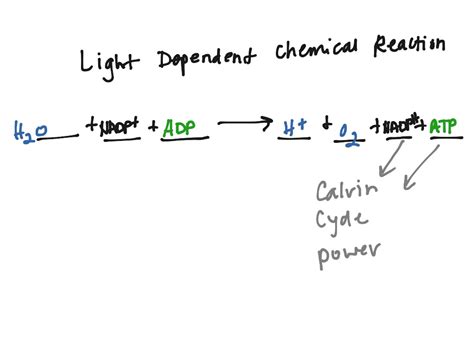 Light Dependent Chemical Reaction
H₂O + NADP⁺ + ADP → H⁺ + O₂ + NADP* + ATP
Calvin
Cycle
power